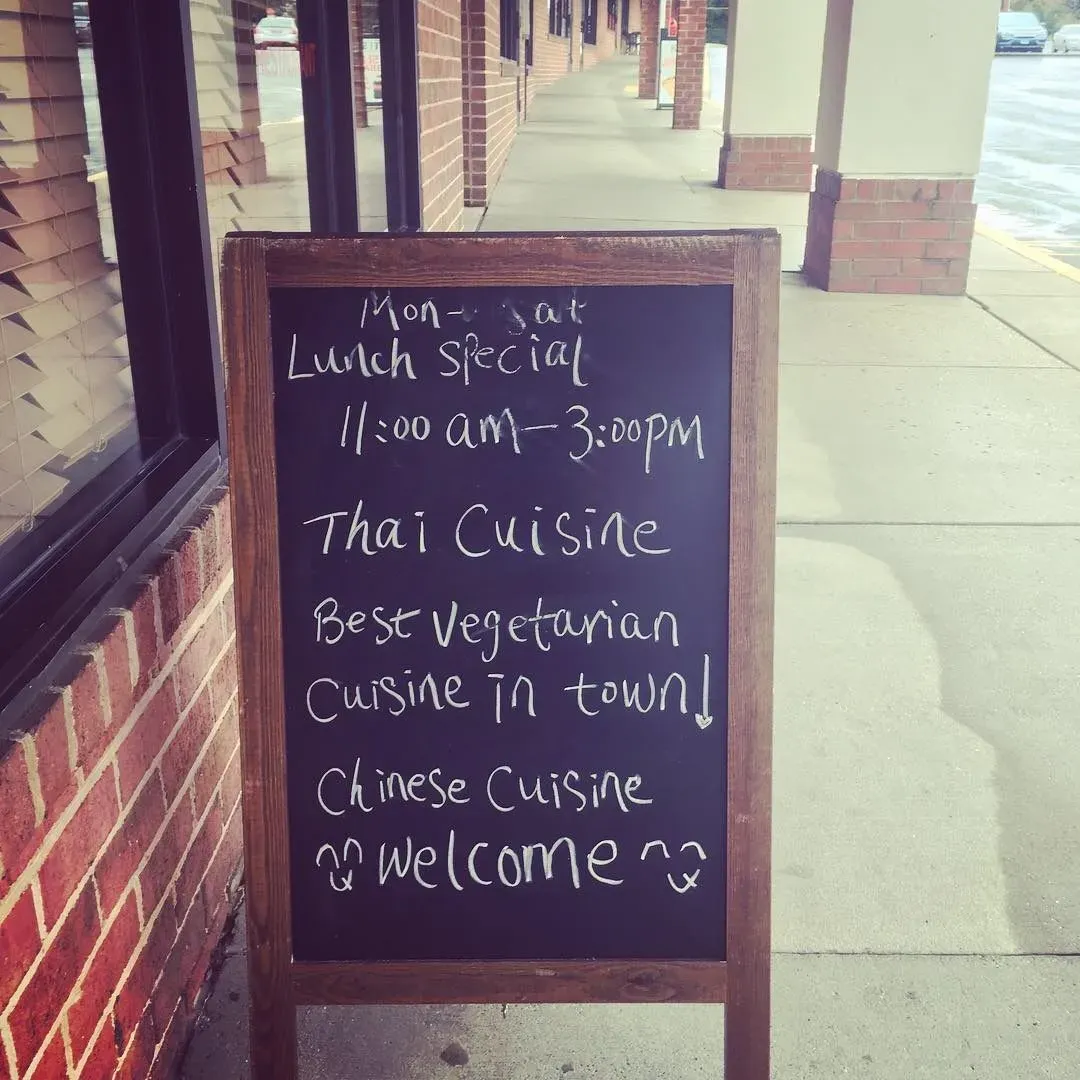 Mon- sat
Lunch special
11:00 am-3:00PM
Thai Cuisine
Best Vegetarian
Cuisine in town!
Chinese Cuisine
Welcome